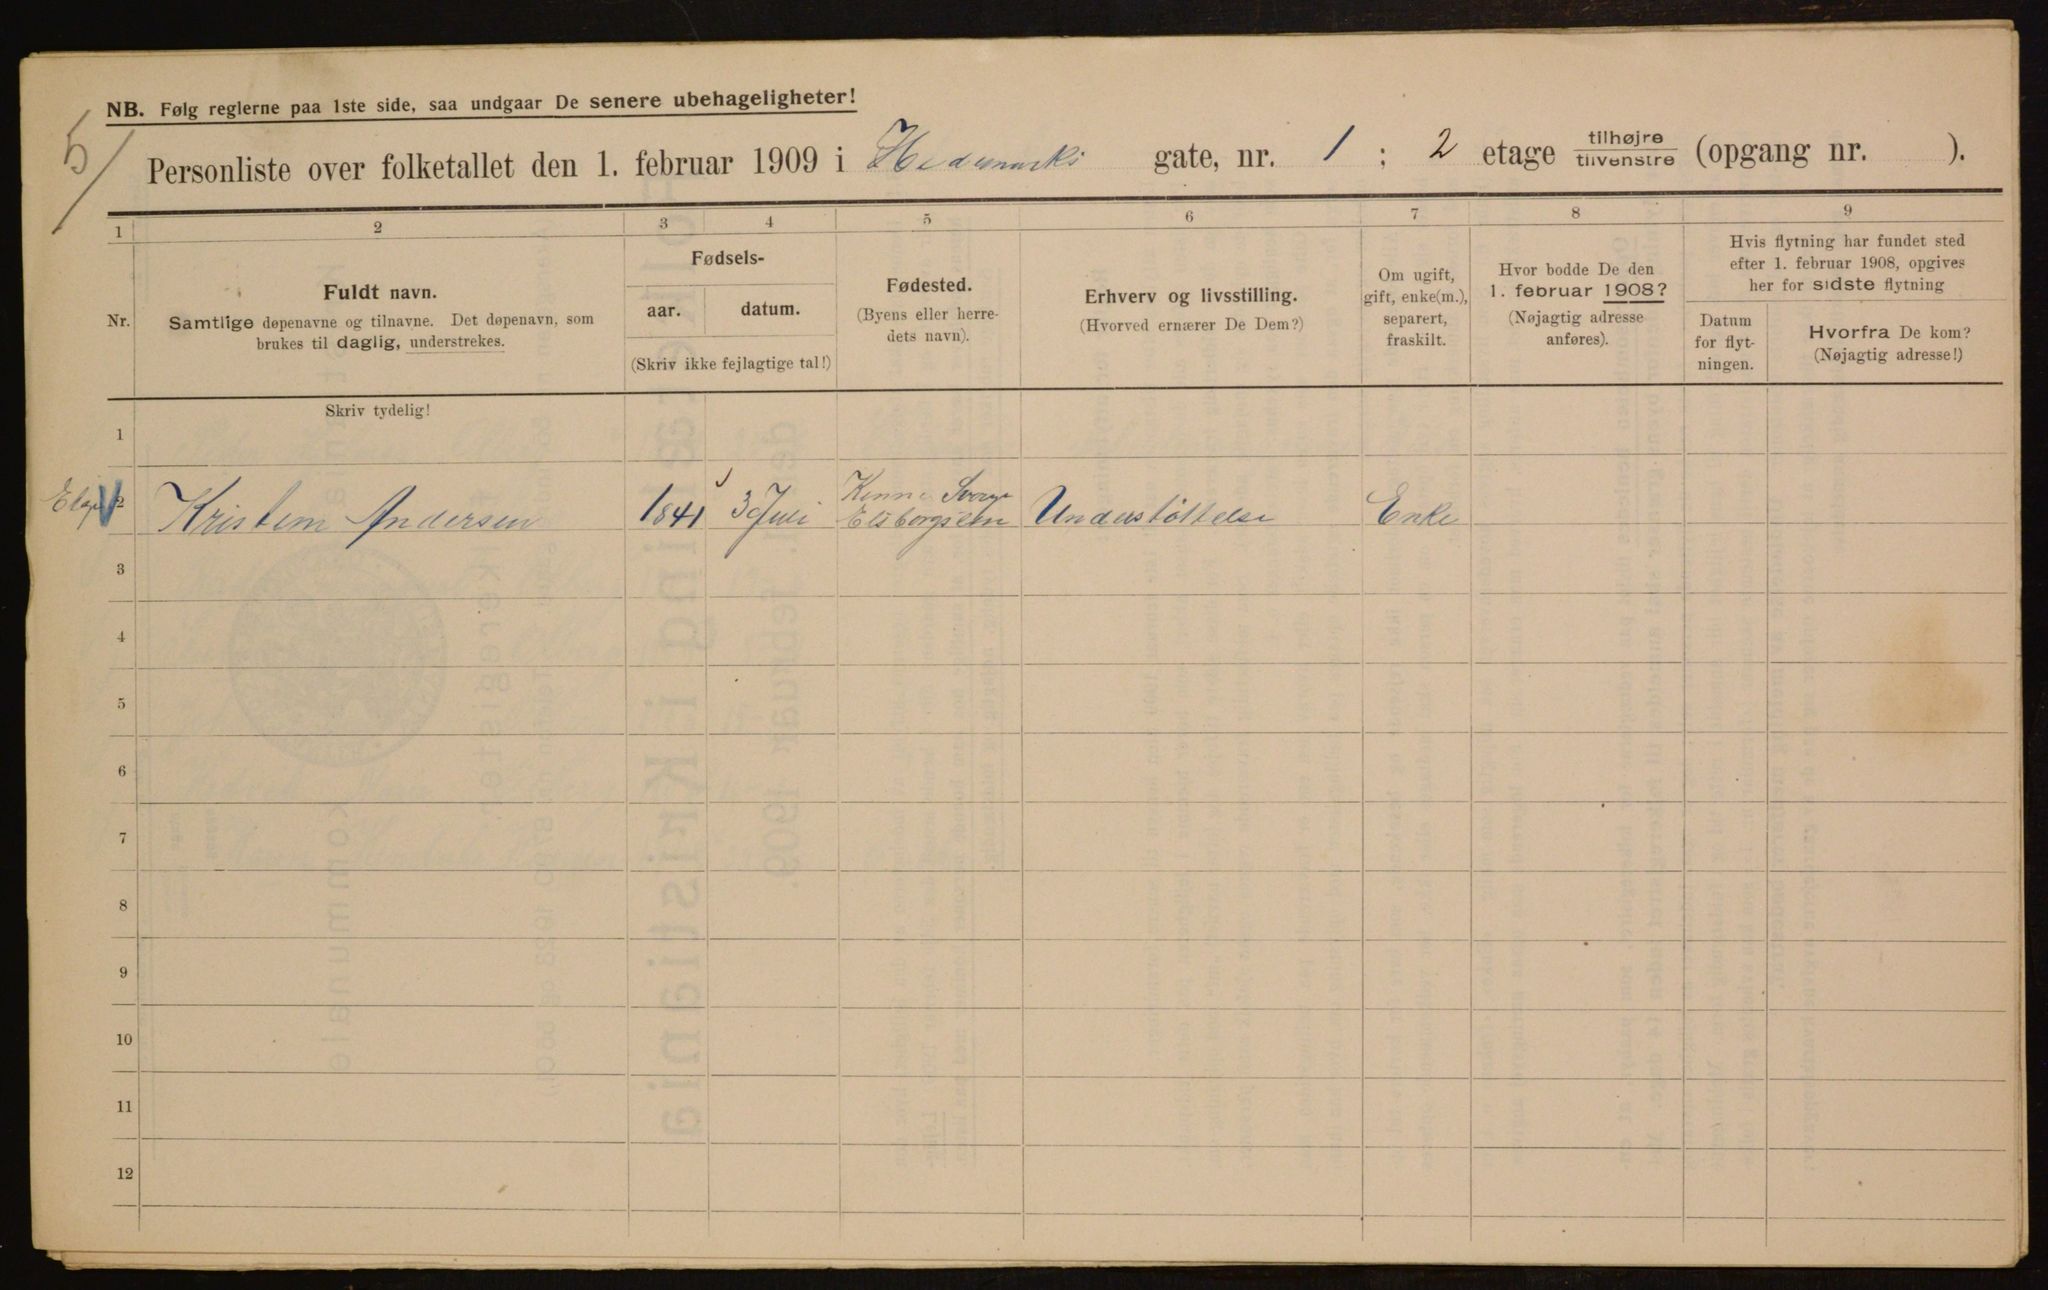 NB. Følg reglerne paa 1ste side, saa undgaar De senere ubehageligheter!
5/
Personliste over folketallet den 1. februar 1909 i Hedemarks gate, nr. 1 ; 2 etage tilhøjre tilvenstre (opgang nr. ).
1 2 3 4 5 6 7 8 9
Nr.
Fuldt navn.
Samtlige døpenavne og tilnavne. Det døpenavn, som
brukes til daglig, understrekes.
Fødsels-
aar. datum.
(Skriv ikke fejlagtige tal!)
Fødested.
(Byens eller herre-
dets navn).
Erhverv og livsstilling.
(Hvorved ernærer De Dem?)
Om ugift,
gift, enke(m.),
separert,
fraskilt.
Hvor bodde De den
1. februar 1908?
(Nøjagtig adresse
anføres).
Hvis flytning har fundet sted
efter 1. februar 1908, opgives
her for sidste flytning
Datum
for flyt-
ningen.
Hvorfra De kom?
(Nøjagtig adresse!)
Skriv tydelig!
1
2 Andersen 1841 3 Juli Understöttelse Enke
3
4
5
6
7
8
9
10
11
12